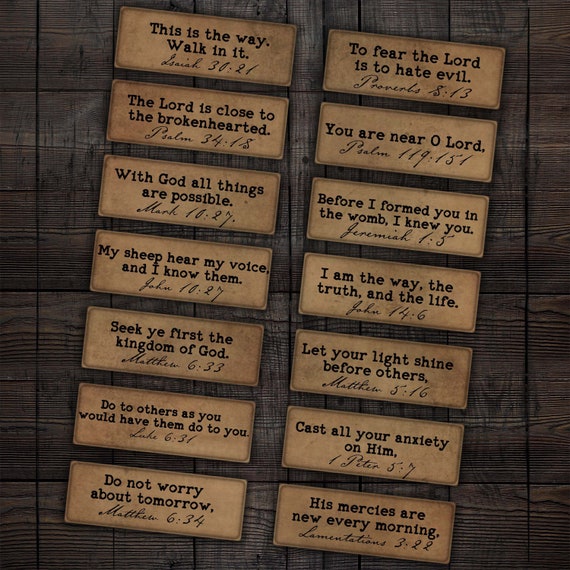 This is the way.
Walk in it.
Isaiah 30:21
The Lord is close to
the brokenhearted.
Psalm 34:18
With God all things
are possible.
Mark 10:27.
My sheep hear my voice,
and I know them.
John 10:27
Seek ye first the
kingdom of God.
Matthew 6:33
Do to others as you
would have them do to you.
Luke 6:31
Do not worry
about tomorrow,
Matthew 6:34
To fear the Lord
is to hate evil.
Proverbs 8:13
You are near O Lord,
Psalm 119:151
Before I formed you in
the womb, I knew you.
Jeremiah 1:5
I am the way, the
truth, and the life.
John 14:6
Let your light shine
before others,
Matthew 5:16
Cast all your anxiety
on Him,
1 Peter 5:7
His mercies are
new every morning,
Lamentations 3:22